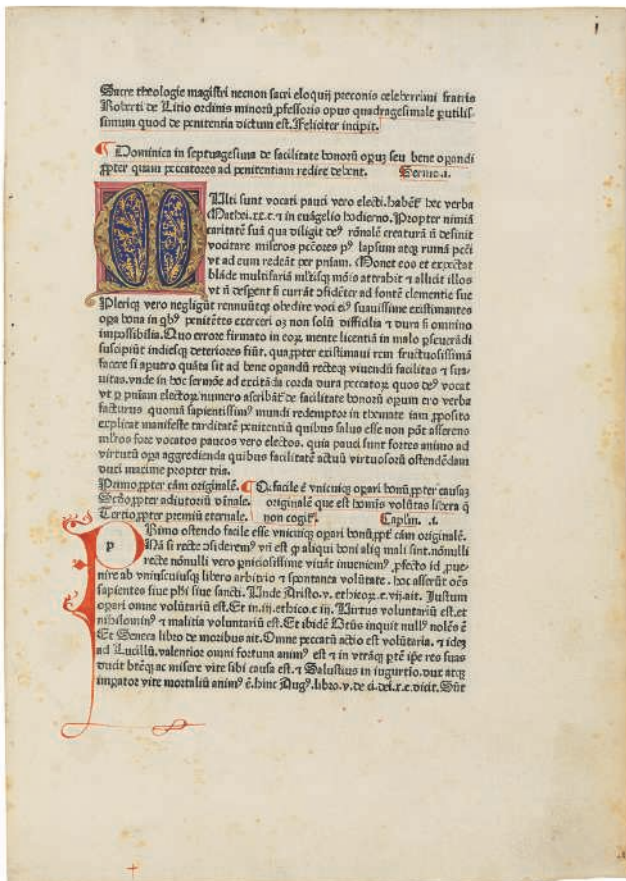 Sacre theologie magistri necnon sacri eloquij preconis celeberrimi fratris
Roberti de Litio ordinis minorū ꝓfessoris opus quadragesimale ꝑutilis-
simum quod de penitentia dictum est. Feliciter incipit.
Dominica in septuagesima de facilitate bonorū oꝑuꝫ seu bene oꝑandi
ꝓpter quam peccatores ad penitentiam redire debent. Sermo .i.
MUlti sunt vocati pauci vero electi. habēt hec verba
Mathei .xx.c. ⁊ in euāgelio hodierno. Propter nimiā
caritatē suā qua diligit deꝰ rōnalē creaturā nō desinit
vocitare miseros pctōres pꝰ lapsum atqꝫ ruinā pctī
vt ad eum redeāt per pniam. Monet eos et expectat
blāde multifariā mltisqꝫ mōis attrahit ⁊ allicit illos
vt nō desperēt si currāt ↄfidēter ad fontē clementie sue
Pleriqꝫ vero negligūt rennuūtqꝫ obedire voci eiꝰ suauissime existimantes
oꝑa bona in qbꝰ penitētes exerceri oꝫ non solū difficilia ⁊ dura sꝫ omnino
impossibilia. Quo errore firmato in eoꝝ mente licentiā in malo ꝑseuerādi
suscipiūt indiesqꝫ deteriores fiūt. quaꝓpter existimaui rem fructuosissimā
facere si aperuero quāta sit ad bene oꝑandū recteqꝫ viuendū facilitas ⁊ sua-
uitas. vnde in hoc sermōe ad excitāda corda dura peccatoꝝ quos deꝰ vocat
vt ꝑ pniam electoꝝ numero ascribāt̄ de facilitate bonorū oꝑum ero verba
facturus quoniā sapientissimꝰ mundi redemptor in themate iam ꝓposito
explicat manifeste tarditatē penitentiū quibus salus esse non pōt asserens
mltos fore vocatos paucos vero electos. quia pauci sunt fortes animo ad
virtutū oꝑa aggredienda quibus facilitatē actuū virtuosorū ostendēdam
duci maxime propter tria.
Primo ꝓpter cām originalē.
Secūdo ꝓpter adiutoriū diuinale.
Tertio ꝓpter premiū eternale.
Qꝫ facile ē vnicuiqꝫ oꝑari bonū ꝓpter causaꝫ
originalē que est homīs volūtas libera q̄
non cogit̄. Caplm̄ .i.
PRimo ostendo facile esse vnicuiqꝫ oꝑari bonū ꝓpter cām originalē.
Nā si recte ↄsideremꝰ vn̄ est ꝙ aliqui boni aliq̄ mali sint. nōnulli
recte nōnulli vero ꝑniciosissime viuāt inueniemꝰ ꝓfecto id ꝓue-
nire ab vniuscuiusqꝫ libero arbitrio ⁊ spontanea volūtate. hoc asserūt oēs
sapientes siue phi siue sancti. Unde Aristo. v. ethicoꝝ .c. vij. ait. Justum
oꝑari omne volūtariū est. Et in .iij. ethico. c iij. Uirtus voluntariū est. et
nihilominꝰ ⁊ malitia voluntariū est. Et ibidē Btūs inquit nullꝰ nolēs ē
Et Seneca libro de moribus ait. Omne peccatū actio est volūtaria. ⁊ ideꝫ
ad Lucillū. valentior omni fortuna animꝰ est ⁊ in vtrāqꝫ ꝑtē ipe res suas
ducit btēqꝫ ac misere vite sibi causa est. ⁊ Salustius in iugurtio. dux atqꝫ
imꝑator vite mortaliū animꝰ ē. hinc Augꝰ. libro .v. de ci. dei .x. c. dicit. Sūt